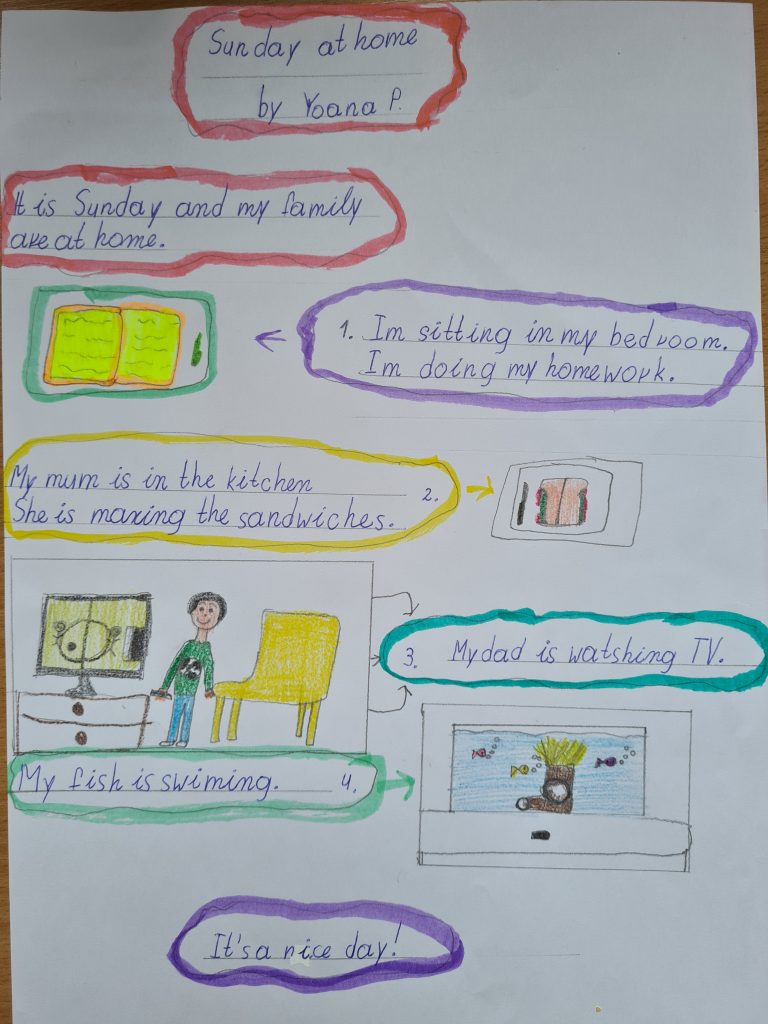 Sunday at home
by Yoana P.
It is Sunday and my family
are at home.
1. Im sitting in my bedroom.
Im doing my homework.
My mum is in the kitchen
2.
She is maxing the sandwiches.
3. My dad is watshing TV.
My fish is swiming. 4.
It's a nice day!